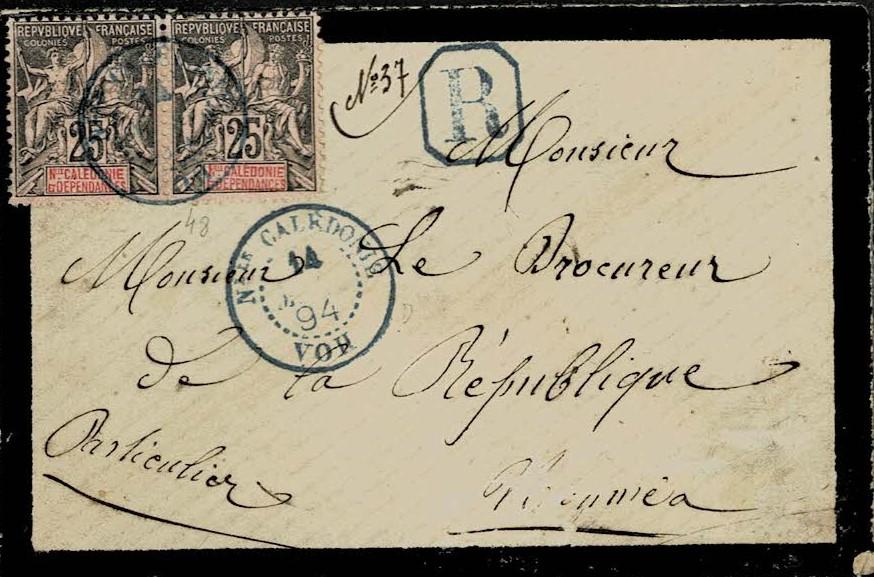 REPVBLIQVE FRANÇAISE
COLONIES POSTES
25
Nlle CALÉDONIE
& DÉPENDANCES
REPVBLIQVE FRANÇAISE
COLONIES POSTES
25
Nlle CALÉDONIE
& DÉPENDANCES
No 37
R
Monsieur
48
Nlle CALÉDONIE
94
VOH
Monsieur Le Procureur
de la République
Particulier
Nouméa